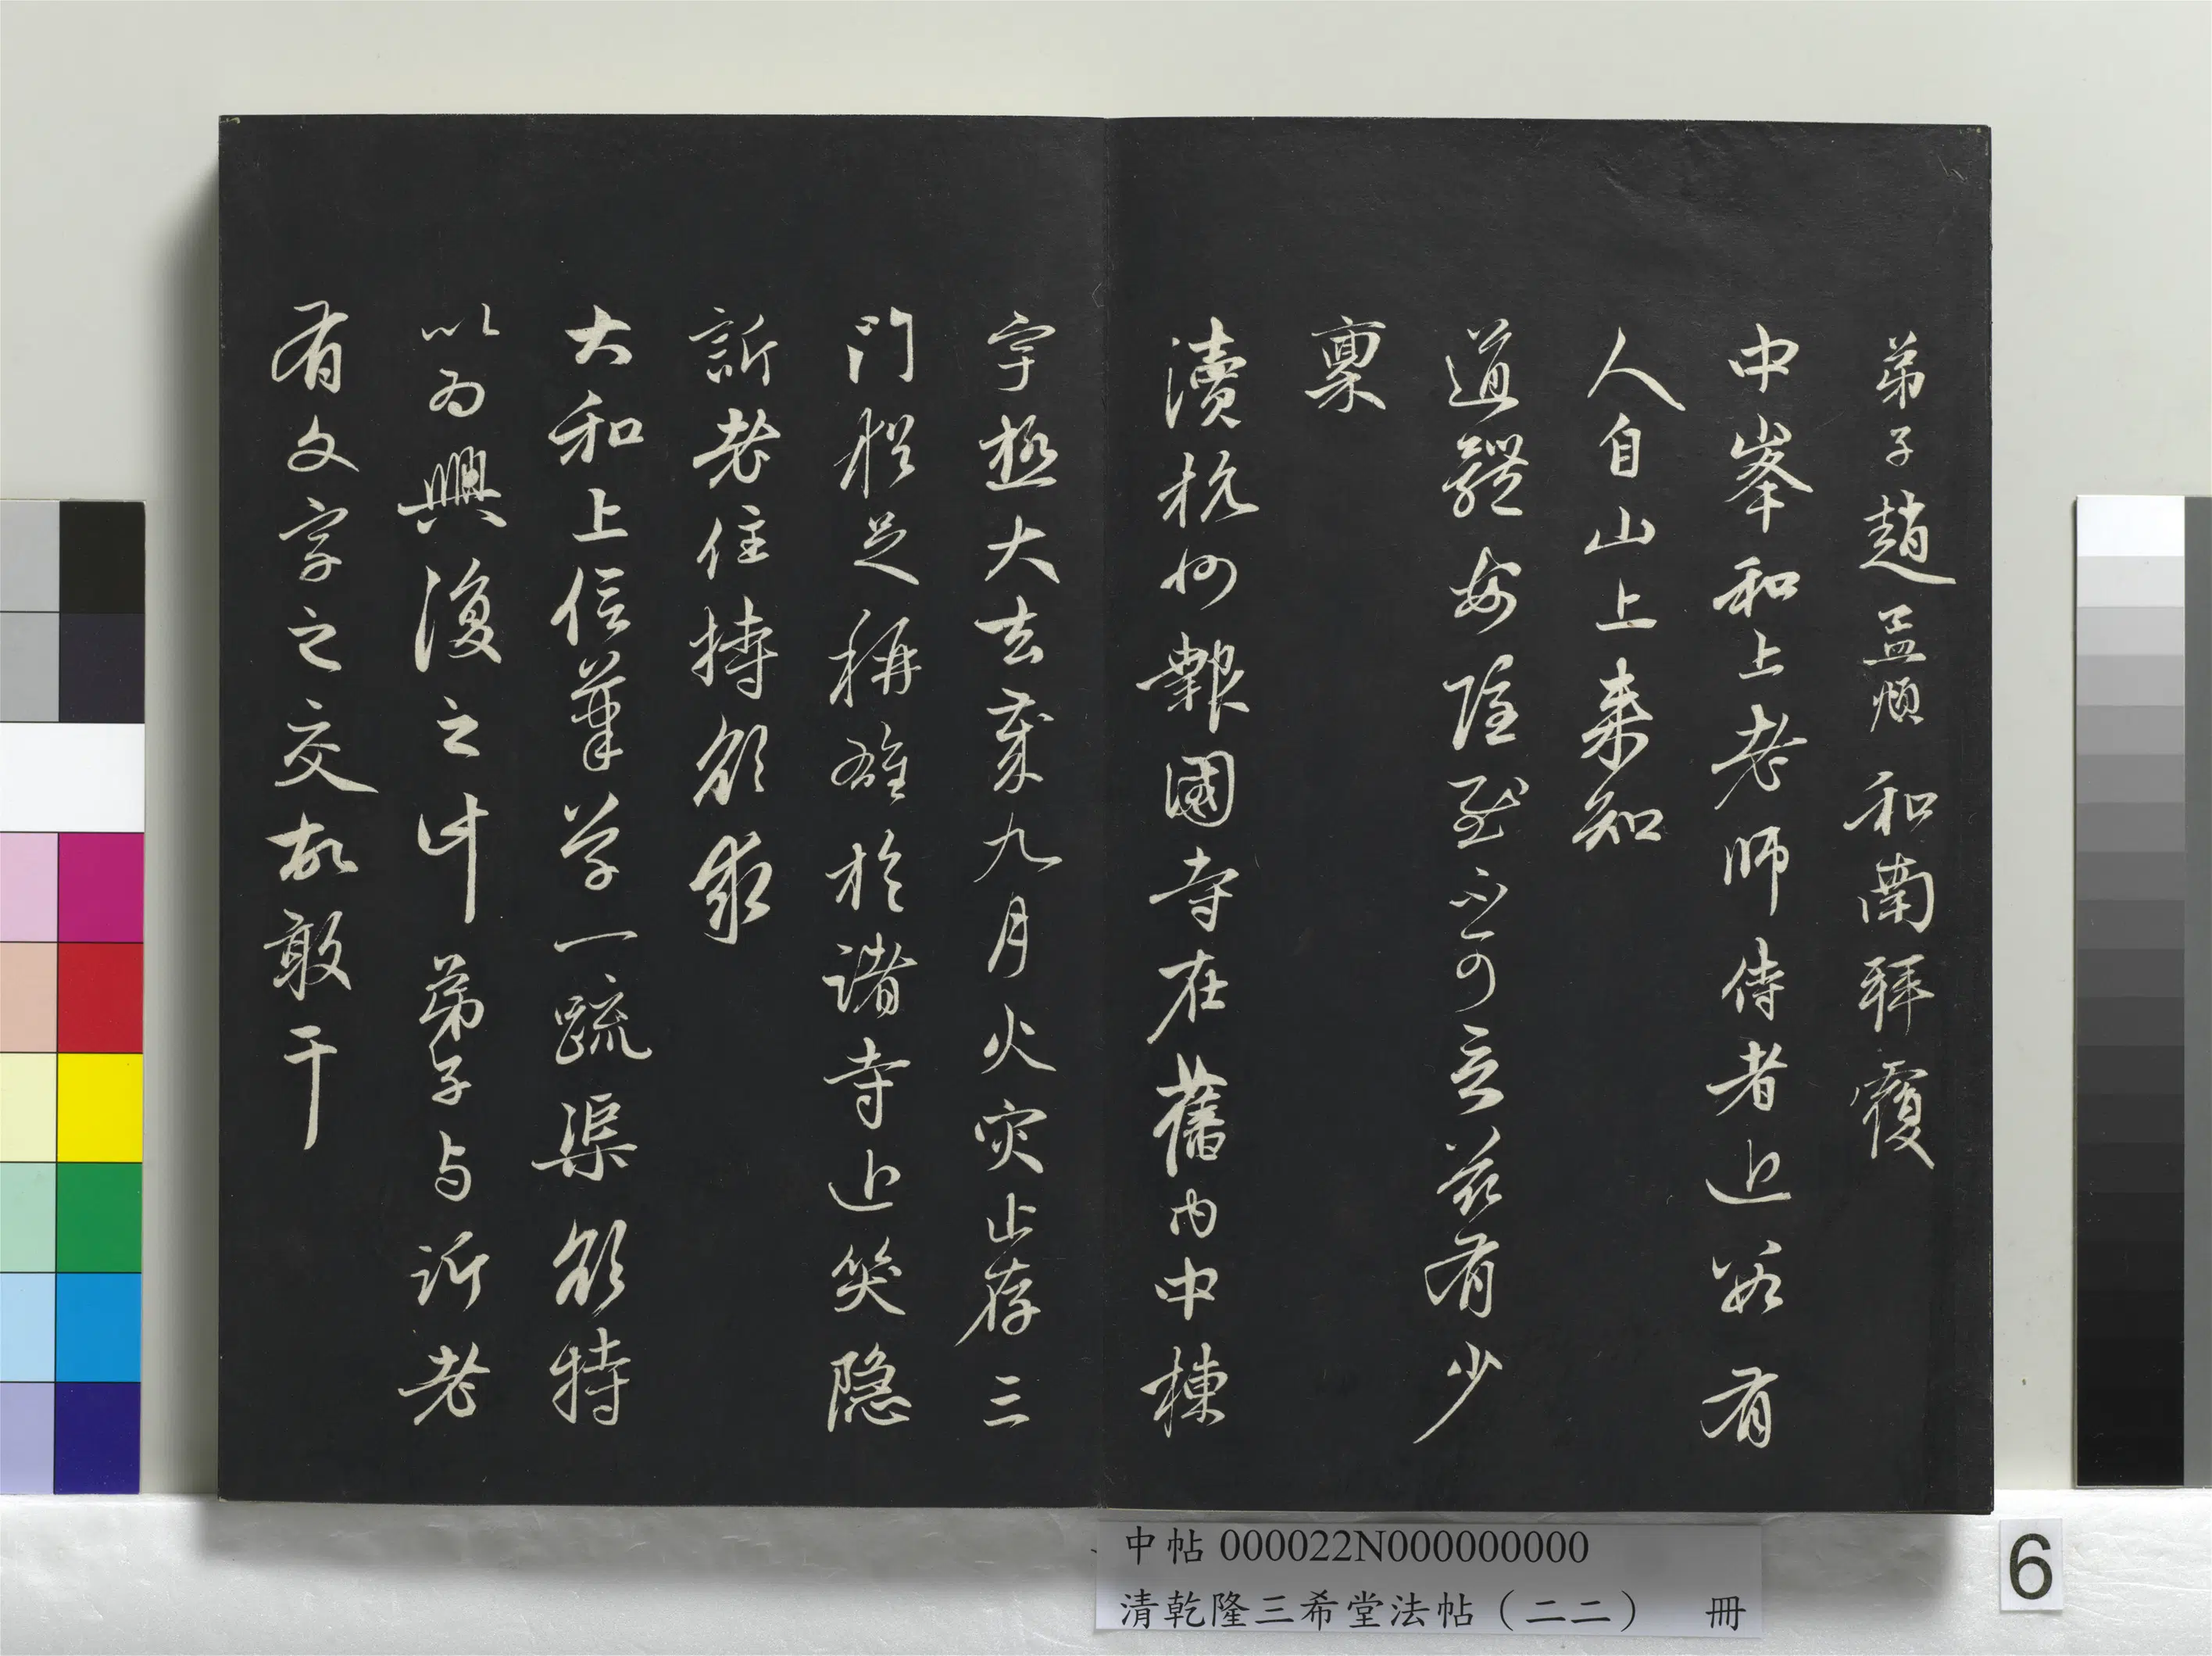 弟子趙孟頫和南拜覆
中峯和上老師侍者近如有
人自山上来知
道體安隱慰不可言茲有少
稟
瀆杭州報國寺在舊内中棟
宇極大去歲九月火灾止存三
門稍足稱雄於諸寺近笑隱
訢老住持欲求
大和上信筆草一疏渠欲特
以为興復之計弟子与訢老
有文字之交故敢干
中帖000022N000000000
清乾隆三希堂法帖（二二） 冊
6